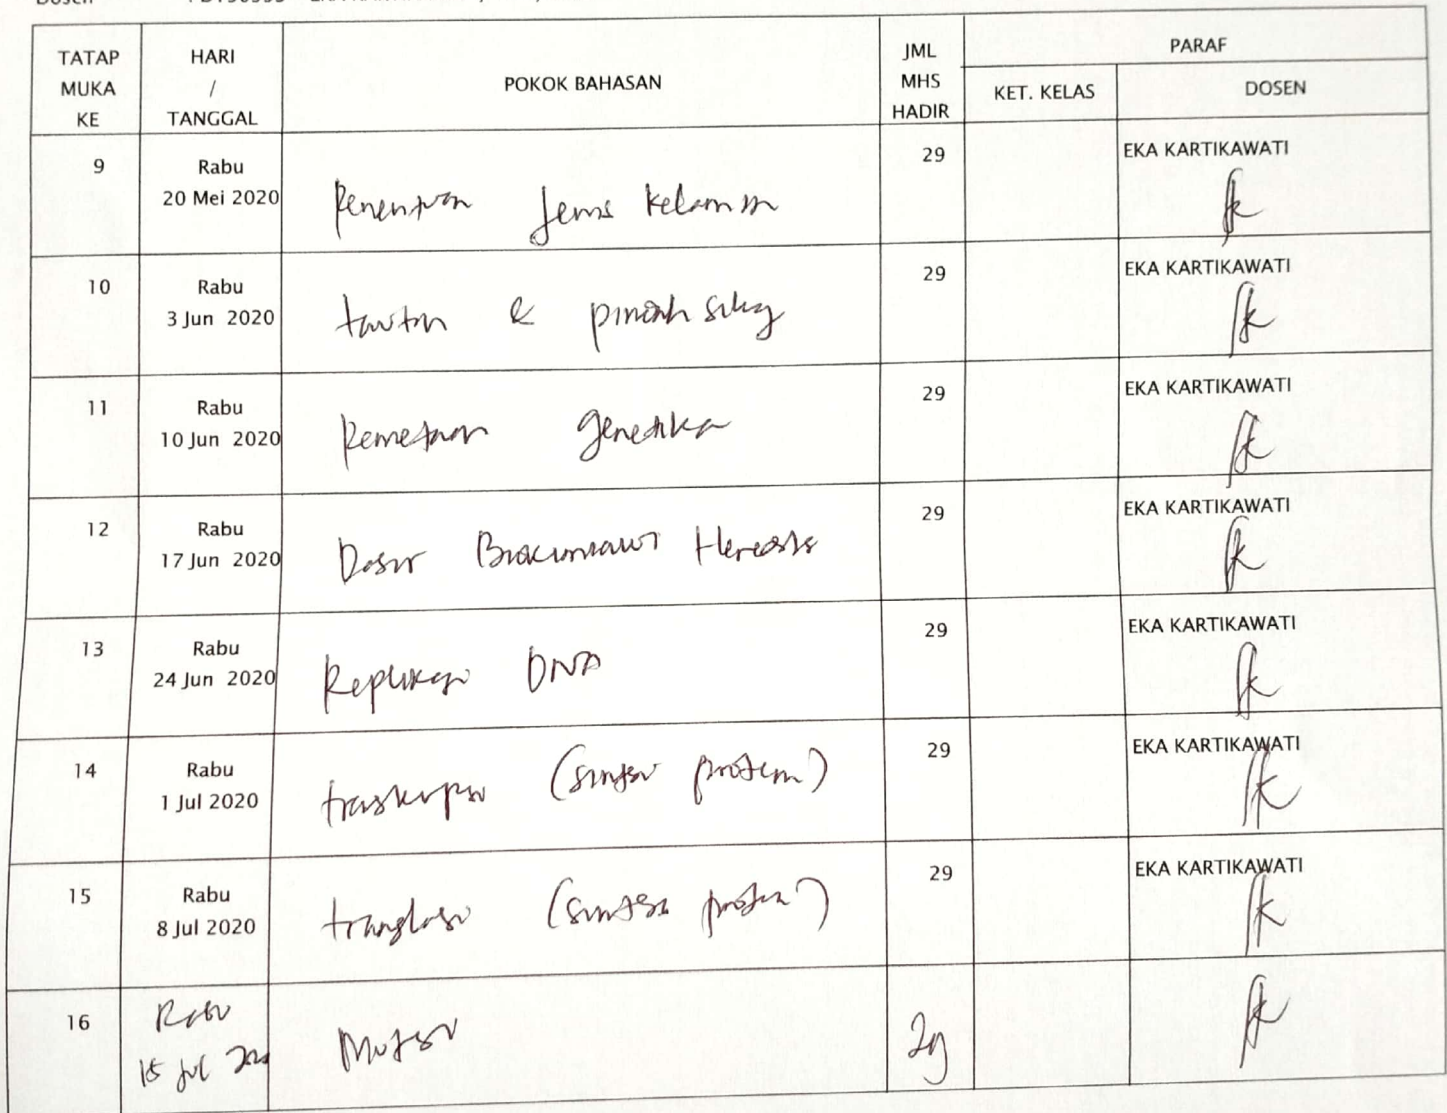 Dosen
TATAP MUKA KE
HARI / TANGGAL
POKOK BAHASAN
JML MHS HADIR
PARAF
KET. KELAS
DOSEN
9 Rabu 20 Mei 2020 Penentuan Jenis Kelamin 29 EKA KARTIKAWATI
10 Rabu 3 Jun 2020 tautan & pindah silang 29 EKA KARTIKAWATI
11 Rabu 10 Jun 2020 Pemetaan genetika 29 EKA KARTIKAWATI
12 Rabu 17 Jun 2020 Dasar Biokimiawi Hereditas 29 EKA KARTIKAWATI
13 Rabu 24 Jun 2020 Replikasi DNA 29 EKA KARTIKAWATI
14 Rabu 1 Jul 2020 traskripsi (sintesa protein) 29 EKA KARTIKAWATI
15 Rabu 8 Jul 2020 translasi (sintesa protein) 29 EKA KARTIKAWATI
16 Rabu 15 Jul 2020 Mutasi 29